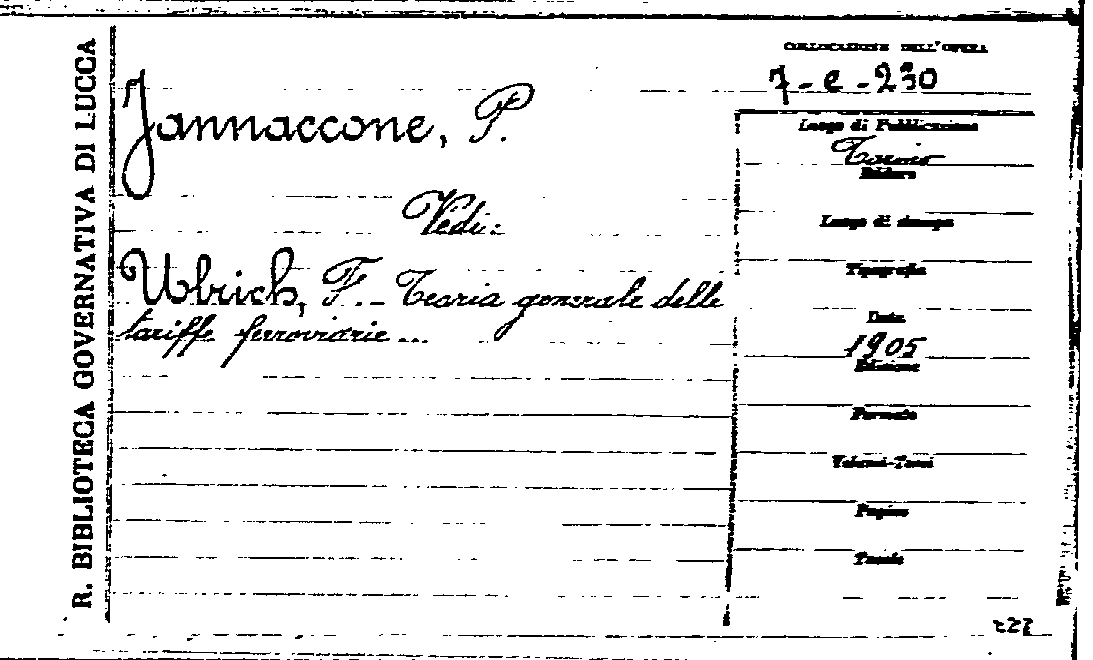 R. BIBLIOTECA GOVERNATIVA DI LUCCA
Jannaccone, P.
Vedi:
Ulrich, F. - Teoria generale delle
tariffe ferroviarie...
COLLOCAZIONE DELL'OPERA
7-e-230
Luogo di Pubblicazione
Torino
Editore
Luogo di stampa
Tipografia
Data
1905
Edizione
Formato
Volumi-Tomi
Pagine
Tavole